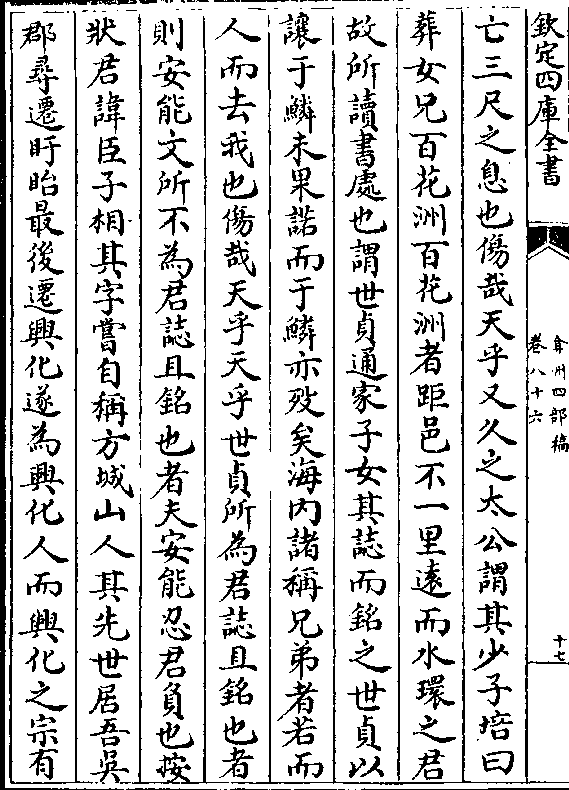 欽定四庫全書
弇州四部稿
卷八十六
十七
亡三尺之息也傷哉天乎又久之太公謂其少子培曰
葬女兄百花洲百花洲者距邑不一里遠而水環之君
故所讀書處也謂世貞通家子女其誌而銘之世貞以
讓于鱗未果諾而于鱗亦歿矣海内諸稱兄弟者若而
人而去我也傷哉天乎天乎世貞所為君誌且銘也者
則安能文所不為君誌且銘也者夫安能忍君負也按
狀君諱臣子相其字嘗自稱方城山人其先世居吾吳
郡尋遷盱眙最後遷興化遂為興化人而興化之宗有